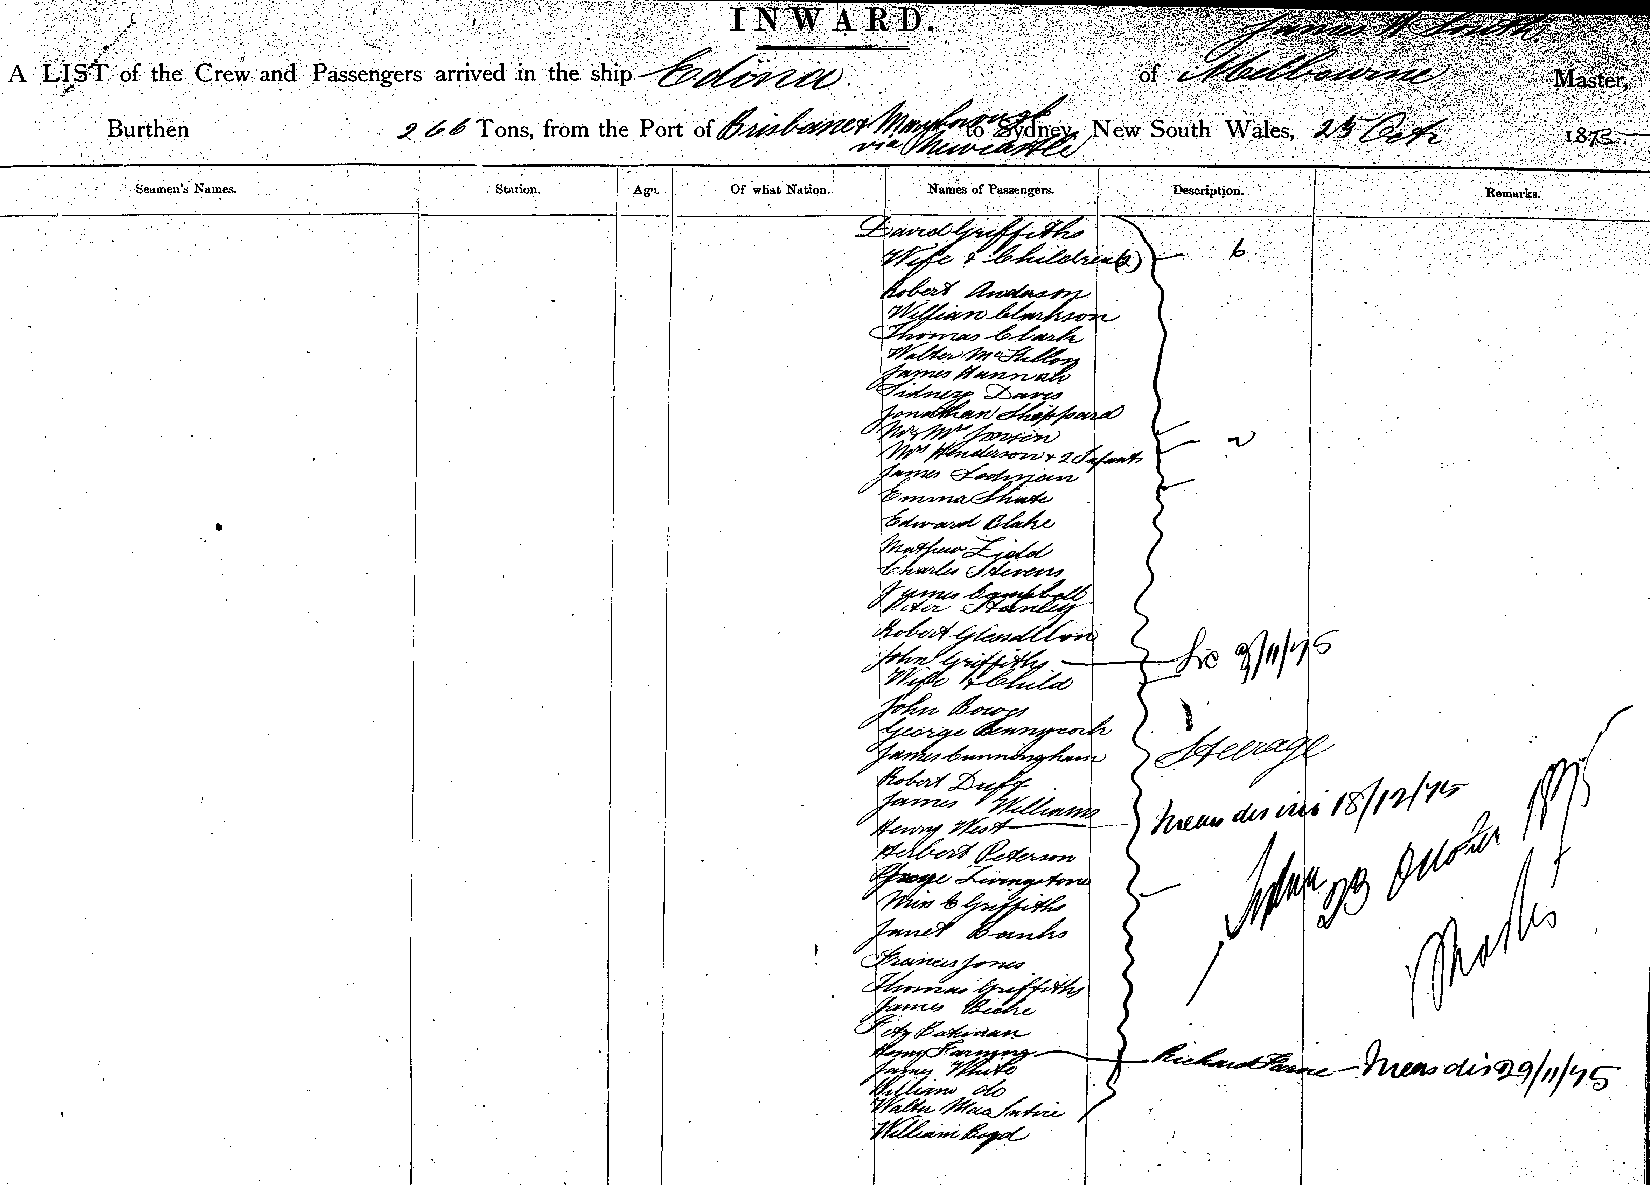 INWARD.
James W Smith
A LIST of the Crew and Passengers arrived in the ship Edina of Melbourne Master,
Burthen 266 Tons, from the Port of Brisbane & Maryborough to Sydney, New South Wales, 25 Oct 1875
via Newcastle
Seamen's Names. Station. Age. Of what Nation. Names of Passengers. Description. Remarks.
David Griffiths
Wife & Children 6
Robert Anderson
William Clarkson
Thomas Clark
Walter
James Hannah
Sidney Davis
Jonathan Sheppard
Mr & Mrs
Mrs Henderson & 2 Infants 2
James
Emma
Edward Blake
Mathew Lidd
Charles Stevens
James Campbell
Peter Stanley
Robert
John Griffiths /11/75
Wife & Child
John
George Pennycook
James Cunningham Steerage
Robert Duff
James Williams
Henry West 18/12/75
Herbert Peterson
George Livingstone
Griffiths
Janet Banks
Francis Jones
Thomas Griffiths
James
Bateman
Henry
James White Richard 29/11/75
William do
Walter MacIntire
William Boyd
Sydney
23 October 1875